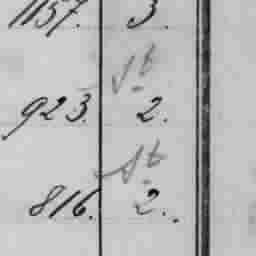 1157. 3.
St
923. 2.
St
816. 2.